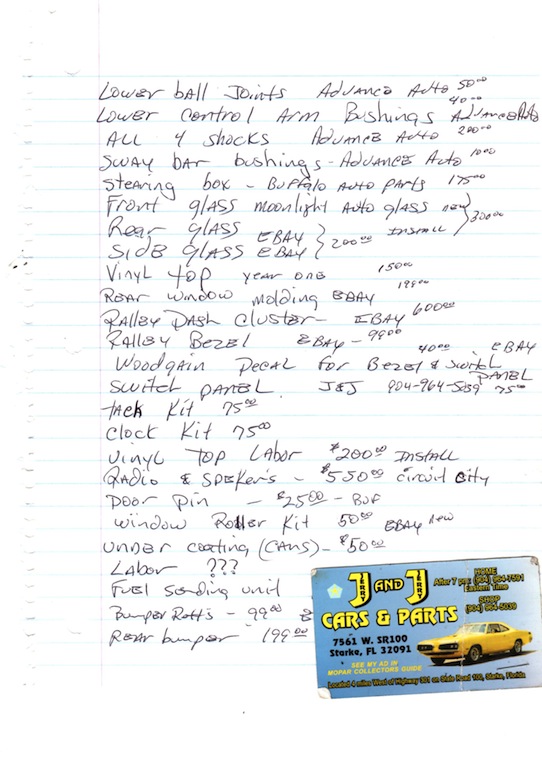 Lower ball Joints Advance Auto 50⁰⁰
Lower Control Arm Bushings Advance Auto 40⁰⁰
ALL 4 shocks Advance Auto 200⁰⁰
Sway bar bushings - Advance Auto 10⁰⁰
Stearing box - Buffalo Auto parts 175⁰⁰
Front glass moonlight Auto glass new
Rear glass EBAY } 200⁰⁰ INSTALL } 300⁰⁰
Side glass EBAY
Vinyl top year one 150⁰⁰
Rear window molding EBAY 199⁰⁰
Ralley Dash Cluster - EBAY 600⁰⁰
Ralley Bezel EBAY - 99⁰⁰
Woodgain Decal for Bezel & Switch PANEL 40⁰⁰ EBAY
Switch panel. J&J 904-964-5039 75⁰⁰
tach Kit 75⁰⁰
Clock Kit 75⁰⁰
Vinyl top Labor $200⁰⁰ INSTALL
Radio & Speker's - $550⁰⁰ circuit City
Door pin - $25⁰⁰ - BUF
window Roller Kit 50⁰⁰ EBAY new
Under coating (CANS) - $50⁰⁰
Labor ???
Fuel sending unit
Bumper - 99⁰⁰
Rear bumper 199⁰⁰
JERRY J AND J TERRY
CARS & PARTS
HOME
After 7 pm: (904) 964-7591
Eastern Time
SHOP
(904) 964-5039
7561 W. SR100
Starke, FL 32091
SEE MY AD IN
MOPAR COLLECTORS GUIDE
Located 4 miles West of Highway 301 on State Road 100, Starke, Florida